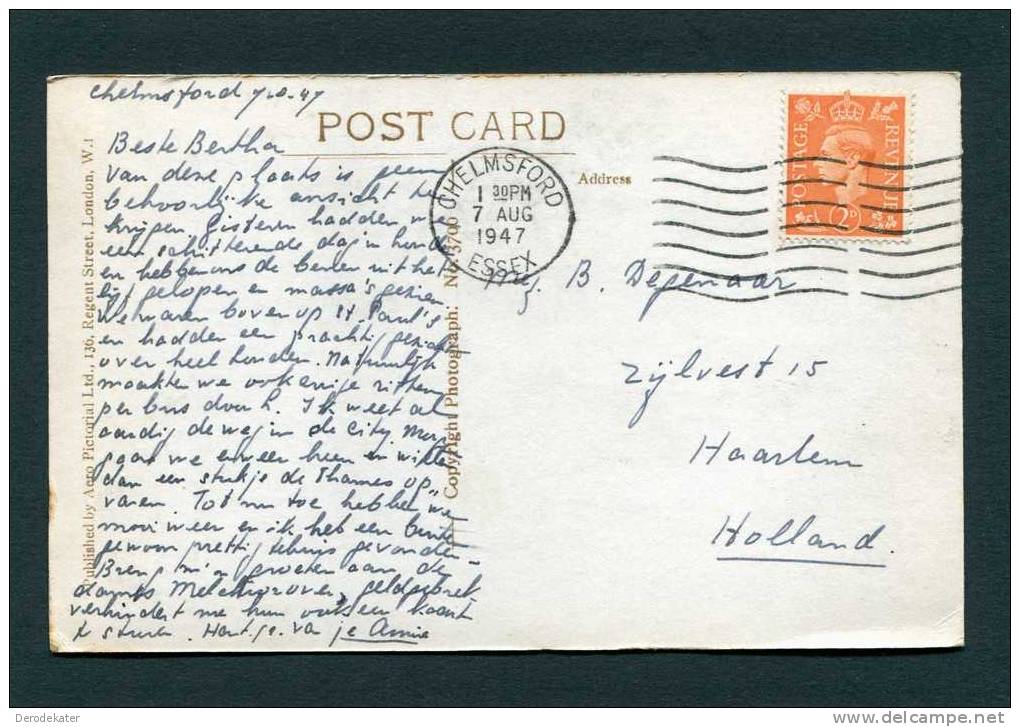 Chelmsford 7-8-47
POST CARD
Beste Bertha
van deze plaats is geen
behoorlijke ansicht te
krijgen. Gisteren hadden we
een schitterende dag in Londen
en hebben ons de benen uit het
lijf gelopen en massa's gezien.
We waren boven op St. Paul's
en hadden een prachtig gezicht
over heel Londen. Natuurlijk
maakten we ook enige ritten
per bus door L. Ik weet al
aardig de weg in de City. Mor-
gen gaan we er weer heen en willen
dan een stukje de Thames op-
varen. Tot nu toe hebben we
mooi weer en ik heb een buiten-
gewoon prettig tehuis gevonden.
Breng m'n groeten aan de
dames Melchior over, geldgebrek
verhindert me hun ook een kaart
te sturen. Hart. gr. van je Annie
Published by Aero Pictorial Ltd., 136, Regent Street, London, W.1
Copyright Photograph: No. 3700
CHELMSFORD
1 30PM
7 AUG
1947
ESSEX
Address
POSTAGE
REVENUE
2D
Mej. B. Degenaar
Zijlvest 15
Haarlem
Holland.
Derodekater
delcampe.net